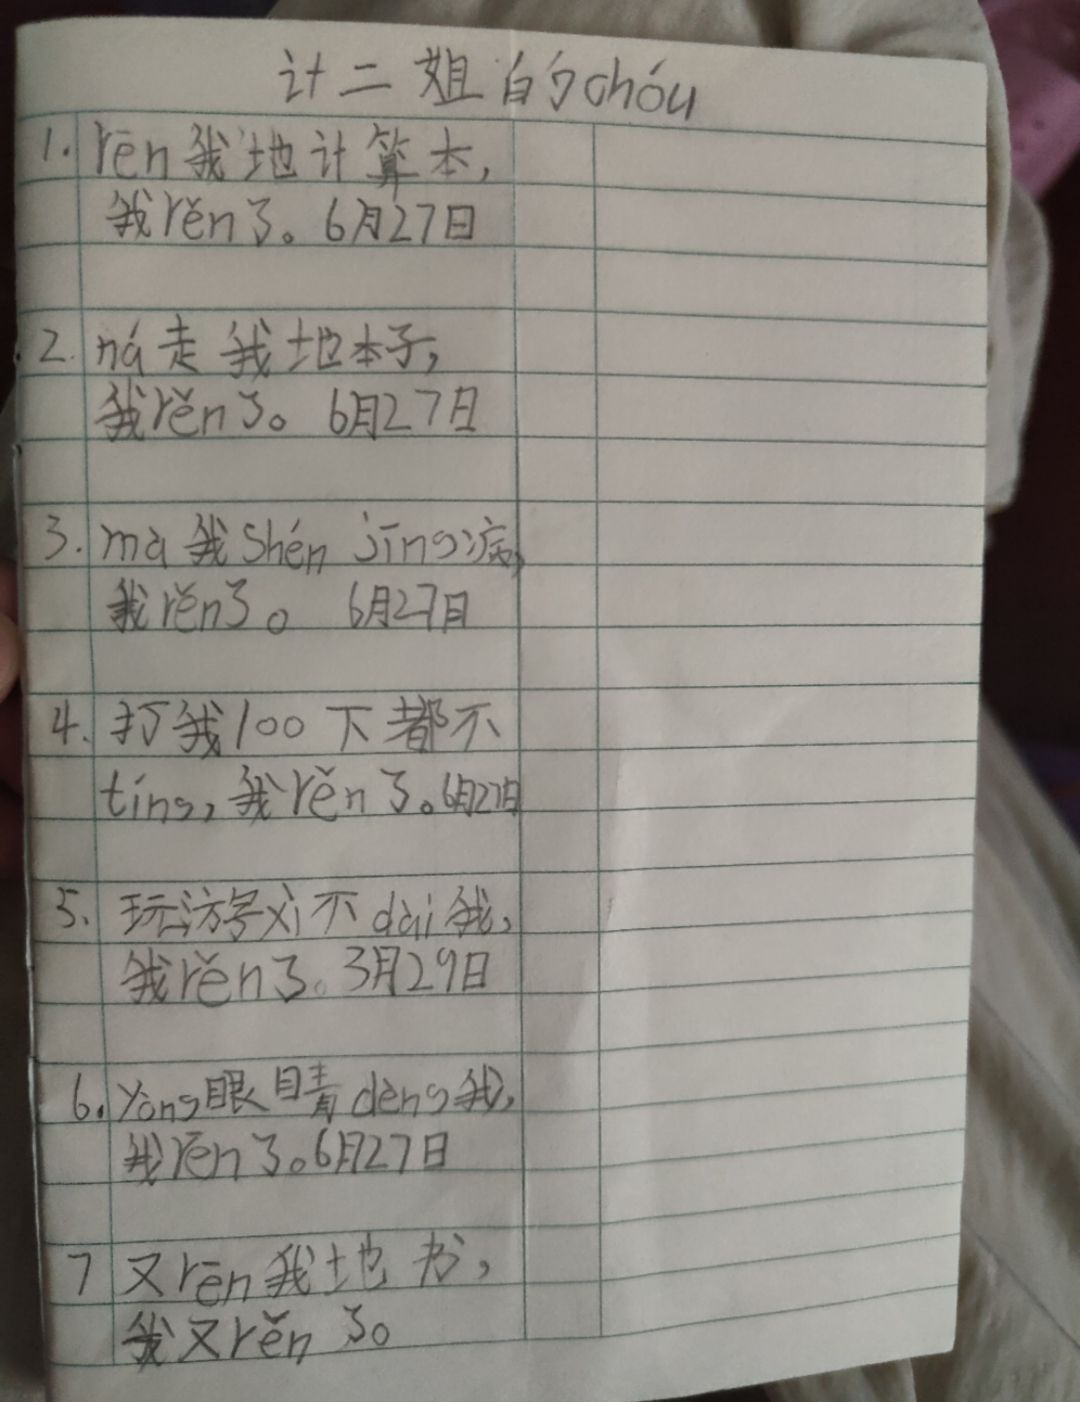 计二姐的chóu
1. rēn我地计算本,
我rěn了。6月27日
2. ná走我地本子,
我rěn了。6月27日
3. mà我shén jīng病,
我rěn了。6月27日
4. 打我100下都不
tíng,我rěn了。6月27日
5. 玩游xì不dài我,
我rěn了。3月29日
6. yòng眼睛dèng我,
我rěn了。6月27日
7 又rēn我地书,
我又rěn了。